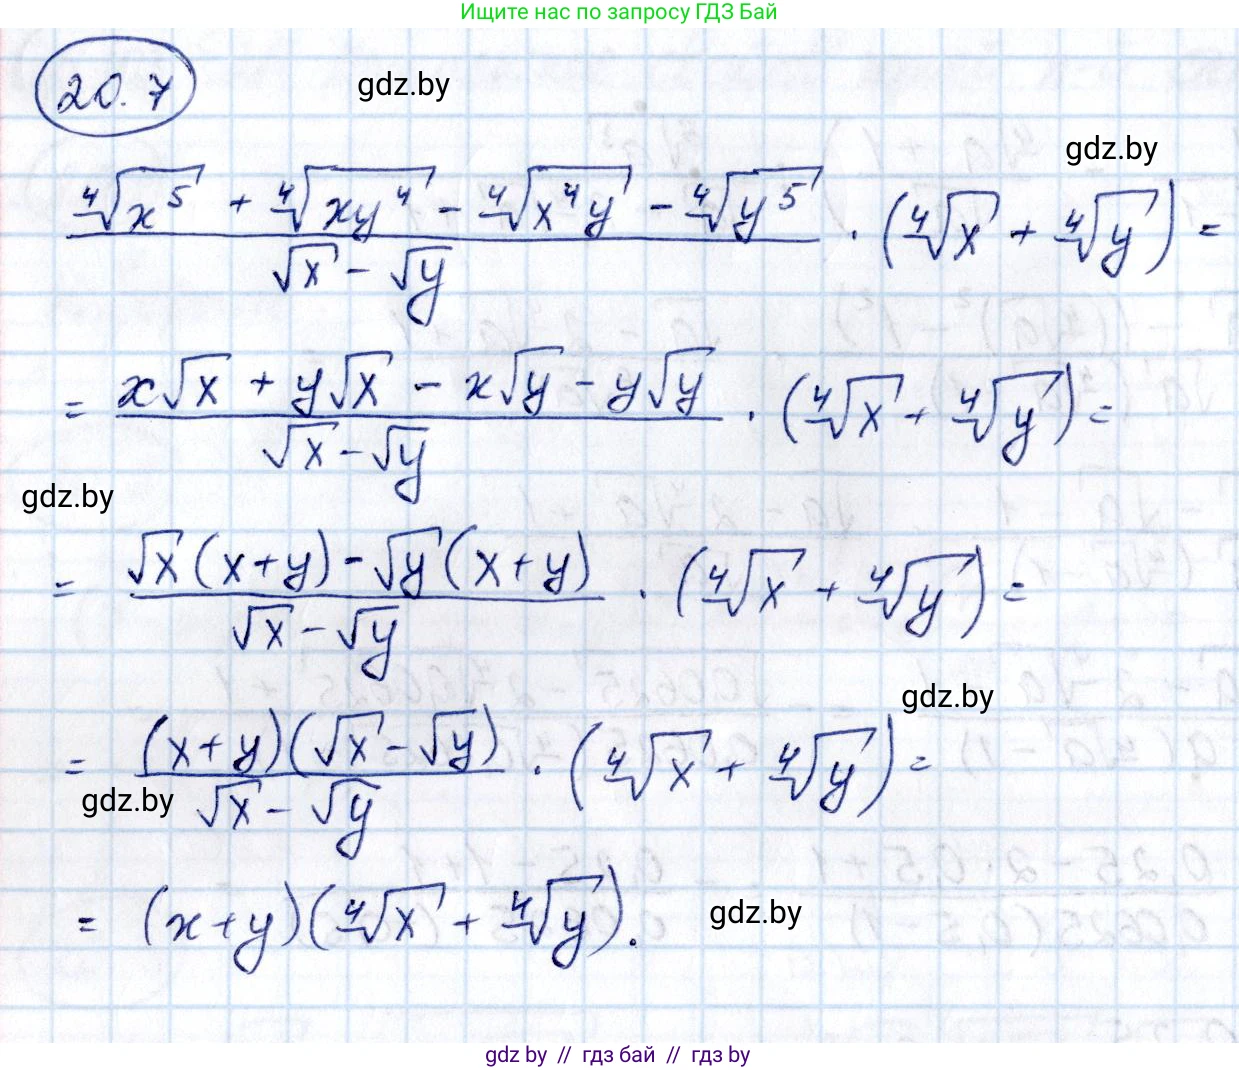 Ищите нас по запросу ГДЗ Бай
20.7
gdz.by
gdz.by
(⁴√x⁵ + ⁴√xy⁴ - ⁴√x⁴y - ⁴√y⁵) / (√x - √y) · (⁴√x + ⁴√y) =
= (x√x + y√x - x√y - y√y) / (√x - √y) · (⁴√x + ⁴√y) =
gdz.by
= (√x(x+y) - √y(x+y)) / (√x - √y) · (⁴√x + ⁴√y) =
gdz.by
= ((x+y)(√x - √y)) / (√x - √y) · (⁴√x + ⁴√y) =
gdz.by
= (x+y)(⁴√x + ⁴√y).
gdz.by
gdz by // гдз бай // гдз by